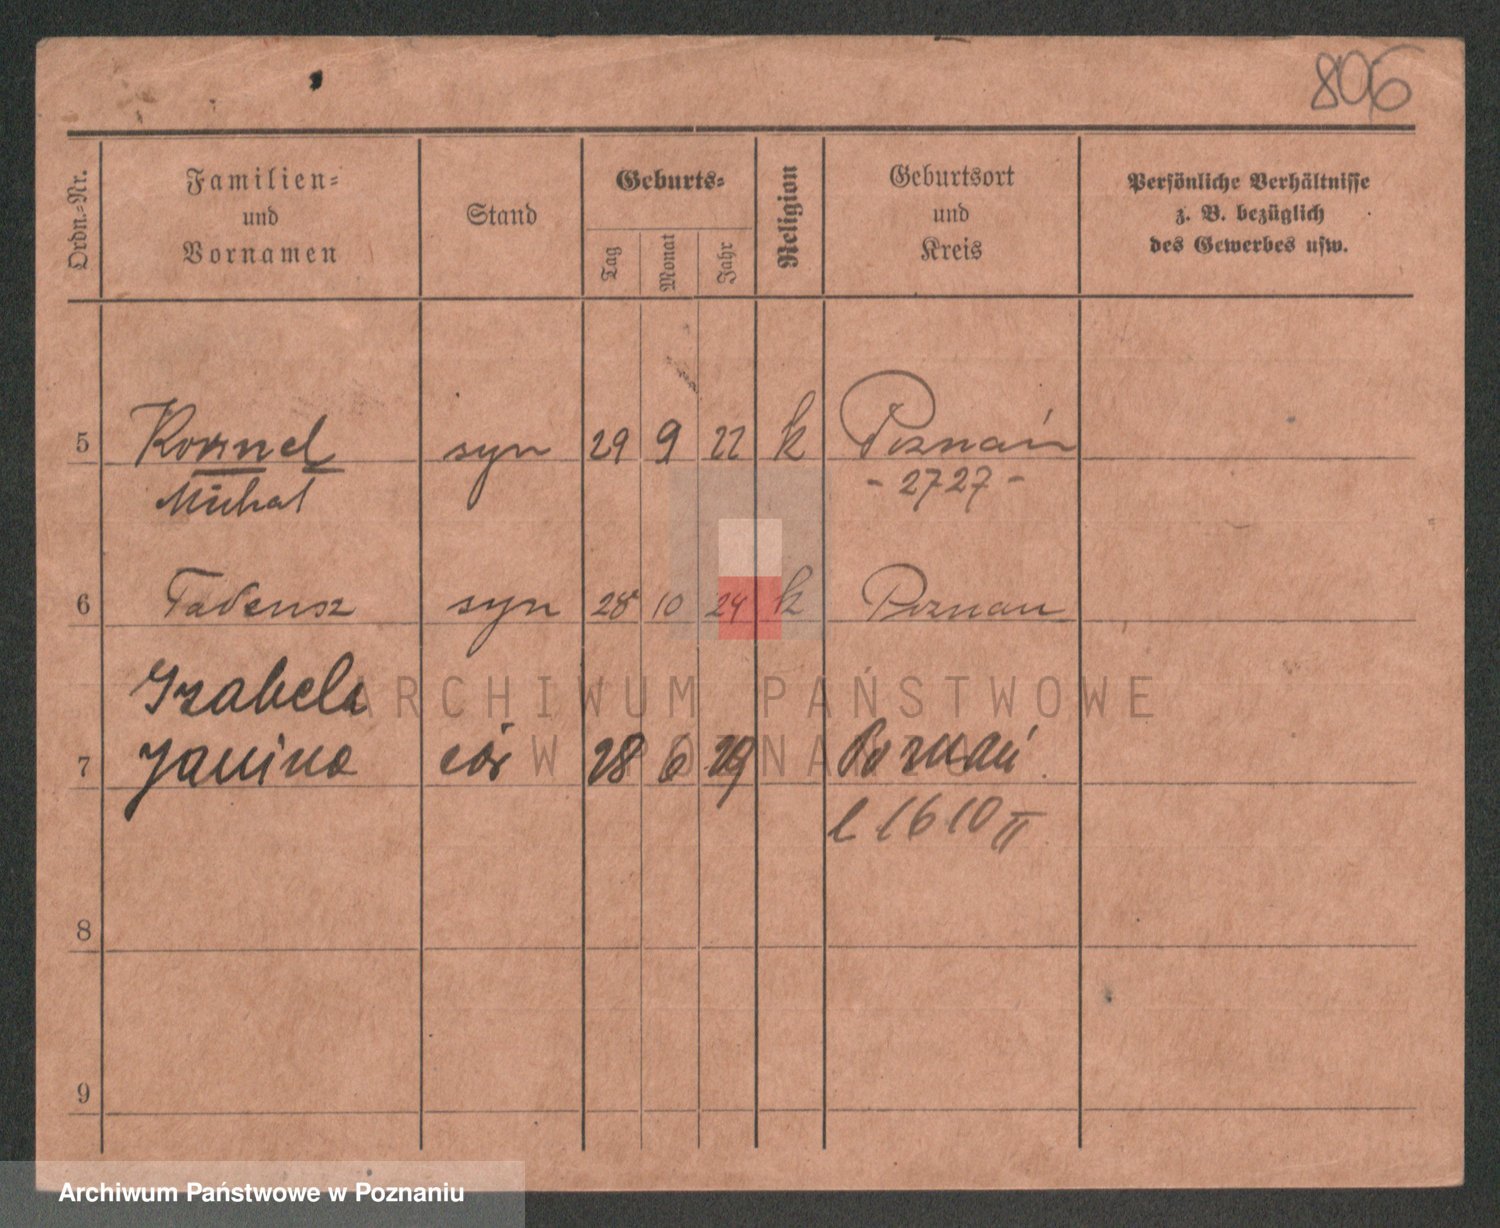 806
Ordn.-Nr.
Familien-
und
Vornamen
Stand
Geburts-
Tag
Monat
Jahr
Religion
Geburtsort
und
Kreis
Persönliche Verhältnisse
z. B. bezüglich
des Gewerbes usw.
5 Kornel syn 29 9 22 k Poznań
Michał - 2727 -
6 Tadeusz syn 28 10 24 k Poznan
Izabela
7 Janina cór 28 6 29 Poznań
l 1610 II
8
9
ARCHIWUM PAŃSTWOWE
W POZNANIU
Archiwum Państwowe w Poznaniu